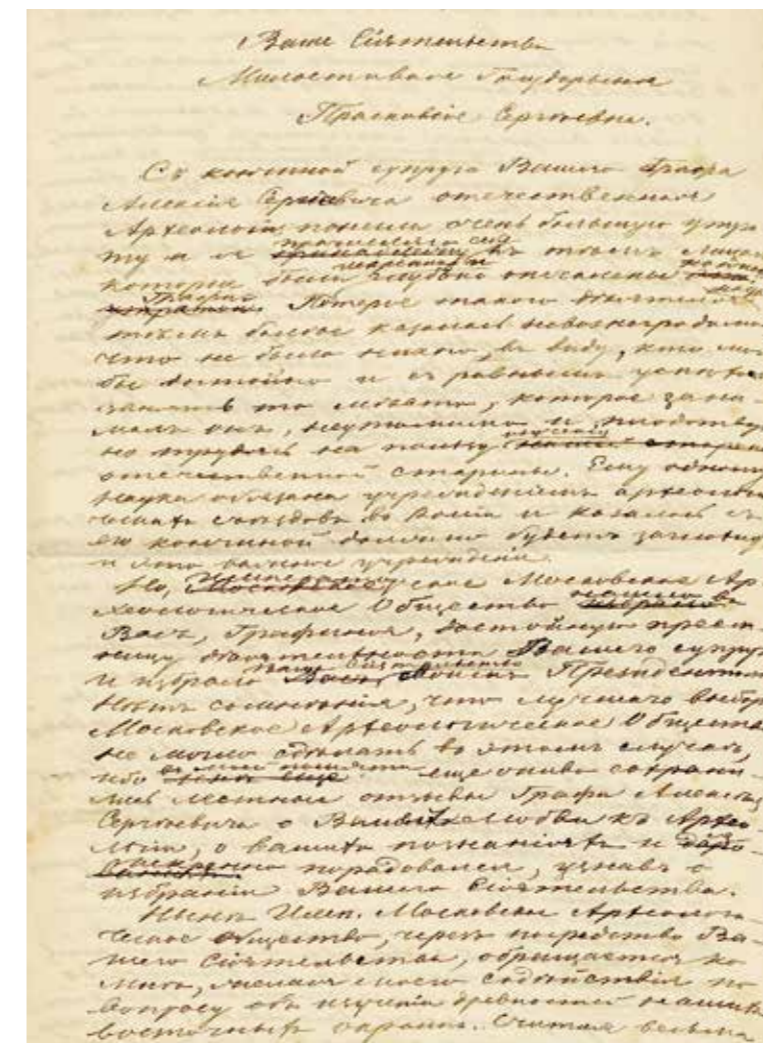 Ваше Сіятельство
Милостивая Государыня
Прасковія Сергѣевна.
Съ кончиной супруга Вашего Графа
Алексѣя Сергѣевича отечественная
Археологія понесла очень большую утра-
ту и я къ тѣмъ лицамъ
которыя были глубоко опечалены
Графа. Потеря такого дѣятеля
тѣмъ болѣе казалась невознаградимою
что не было никого въ виду, кто мог
бы достойно и съ равнымъ успѣхом
занять то мѣсто, которое зани-
малъ онъ, неутомимо и плодотвор
но трудясь на пользу изученія нашей старины
отечественной старины. Ему одному
наука обязана учрежденіемъ археологи
ческихъ съѣздовъ въ Россіи и казалось съ
его кончиной должно будетъ
и это важное учрежденіе.
Но, Императорское Московское Ар-
хеологическое Общество нашло въ
Васъ, Графиня, достойную преем-
ницу дѣятельности Вашего супруга
и избрало Ваше Сіятельство Президентом
Нѣтъ сомнѣнія, что лучшаго выбора
Московское Археологическое Общество
не могло сдѣлать въ этомъ случаѣ,
ибо въ моей памяти еще сохрани-
лись лестные отзывы Графа Алексѣя
Сергѣевича о Вашей любви къ Архео-
логіи, о вашихъ познаніяхъ и
искренно порадовался, узнавъ о
избраніи Вашего Сіятельства.
Нынѣ Имп. Московское Археологи-
ческое общество, черезъ посредство Ва-
шего Сіятельства, обращается ко
мнѣ, моего содѣйствія по
вопросу объ изученіи древностей нашихъ
восточныхъ окраинъ. Считая весьма